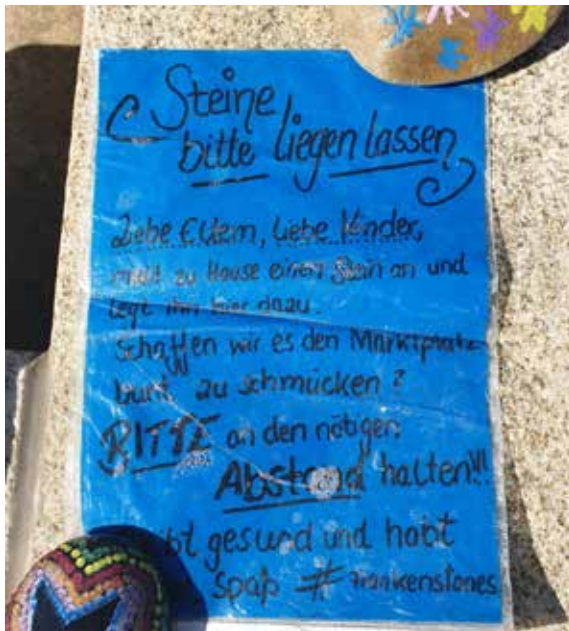 Steine
bitte liegen lassen
Liebe Eltern, liebe Kinder,
malt zu Hause einen Stein an und
legt ihn hier dazu.
Schaffen wir es den Marktplatz
bunt zu schmücken?
BITTE an den nötigen
Abstand halten!!!
gesund und habt
Spaß #Frankenstones